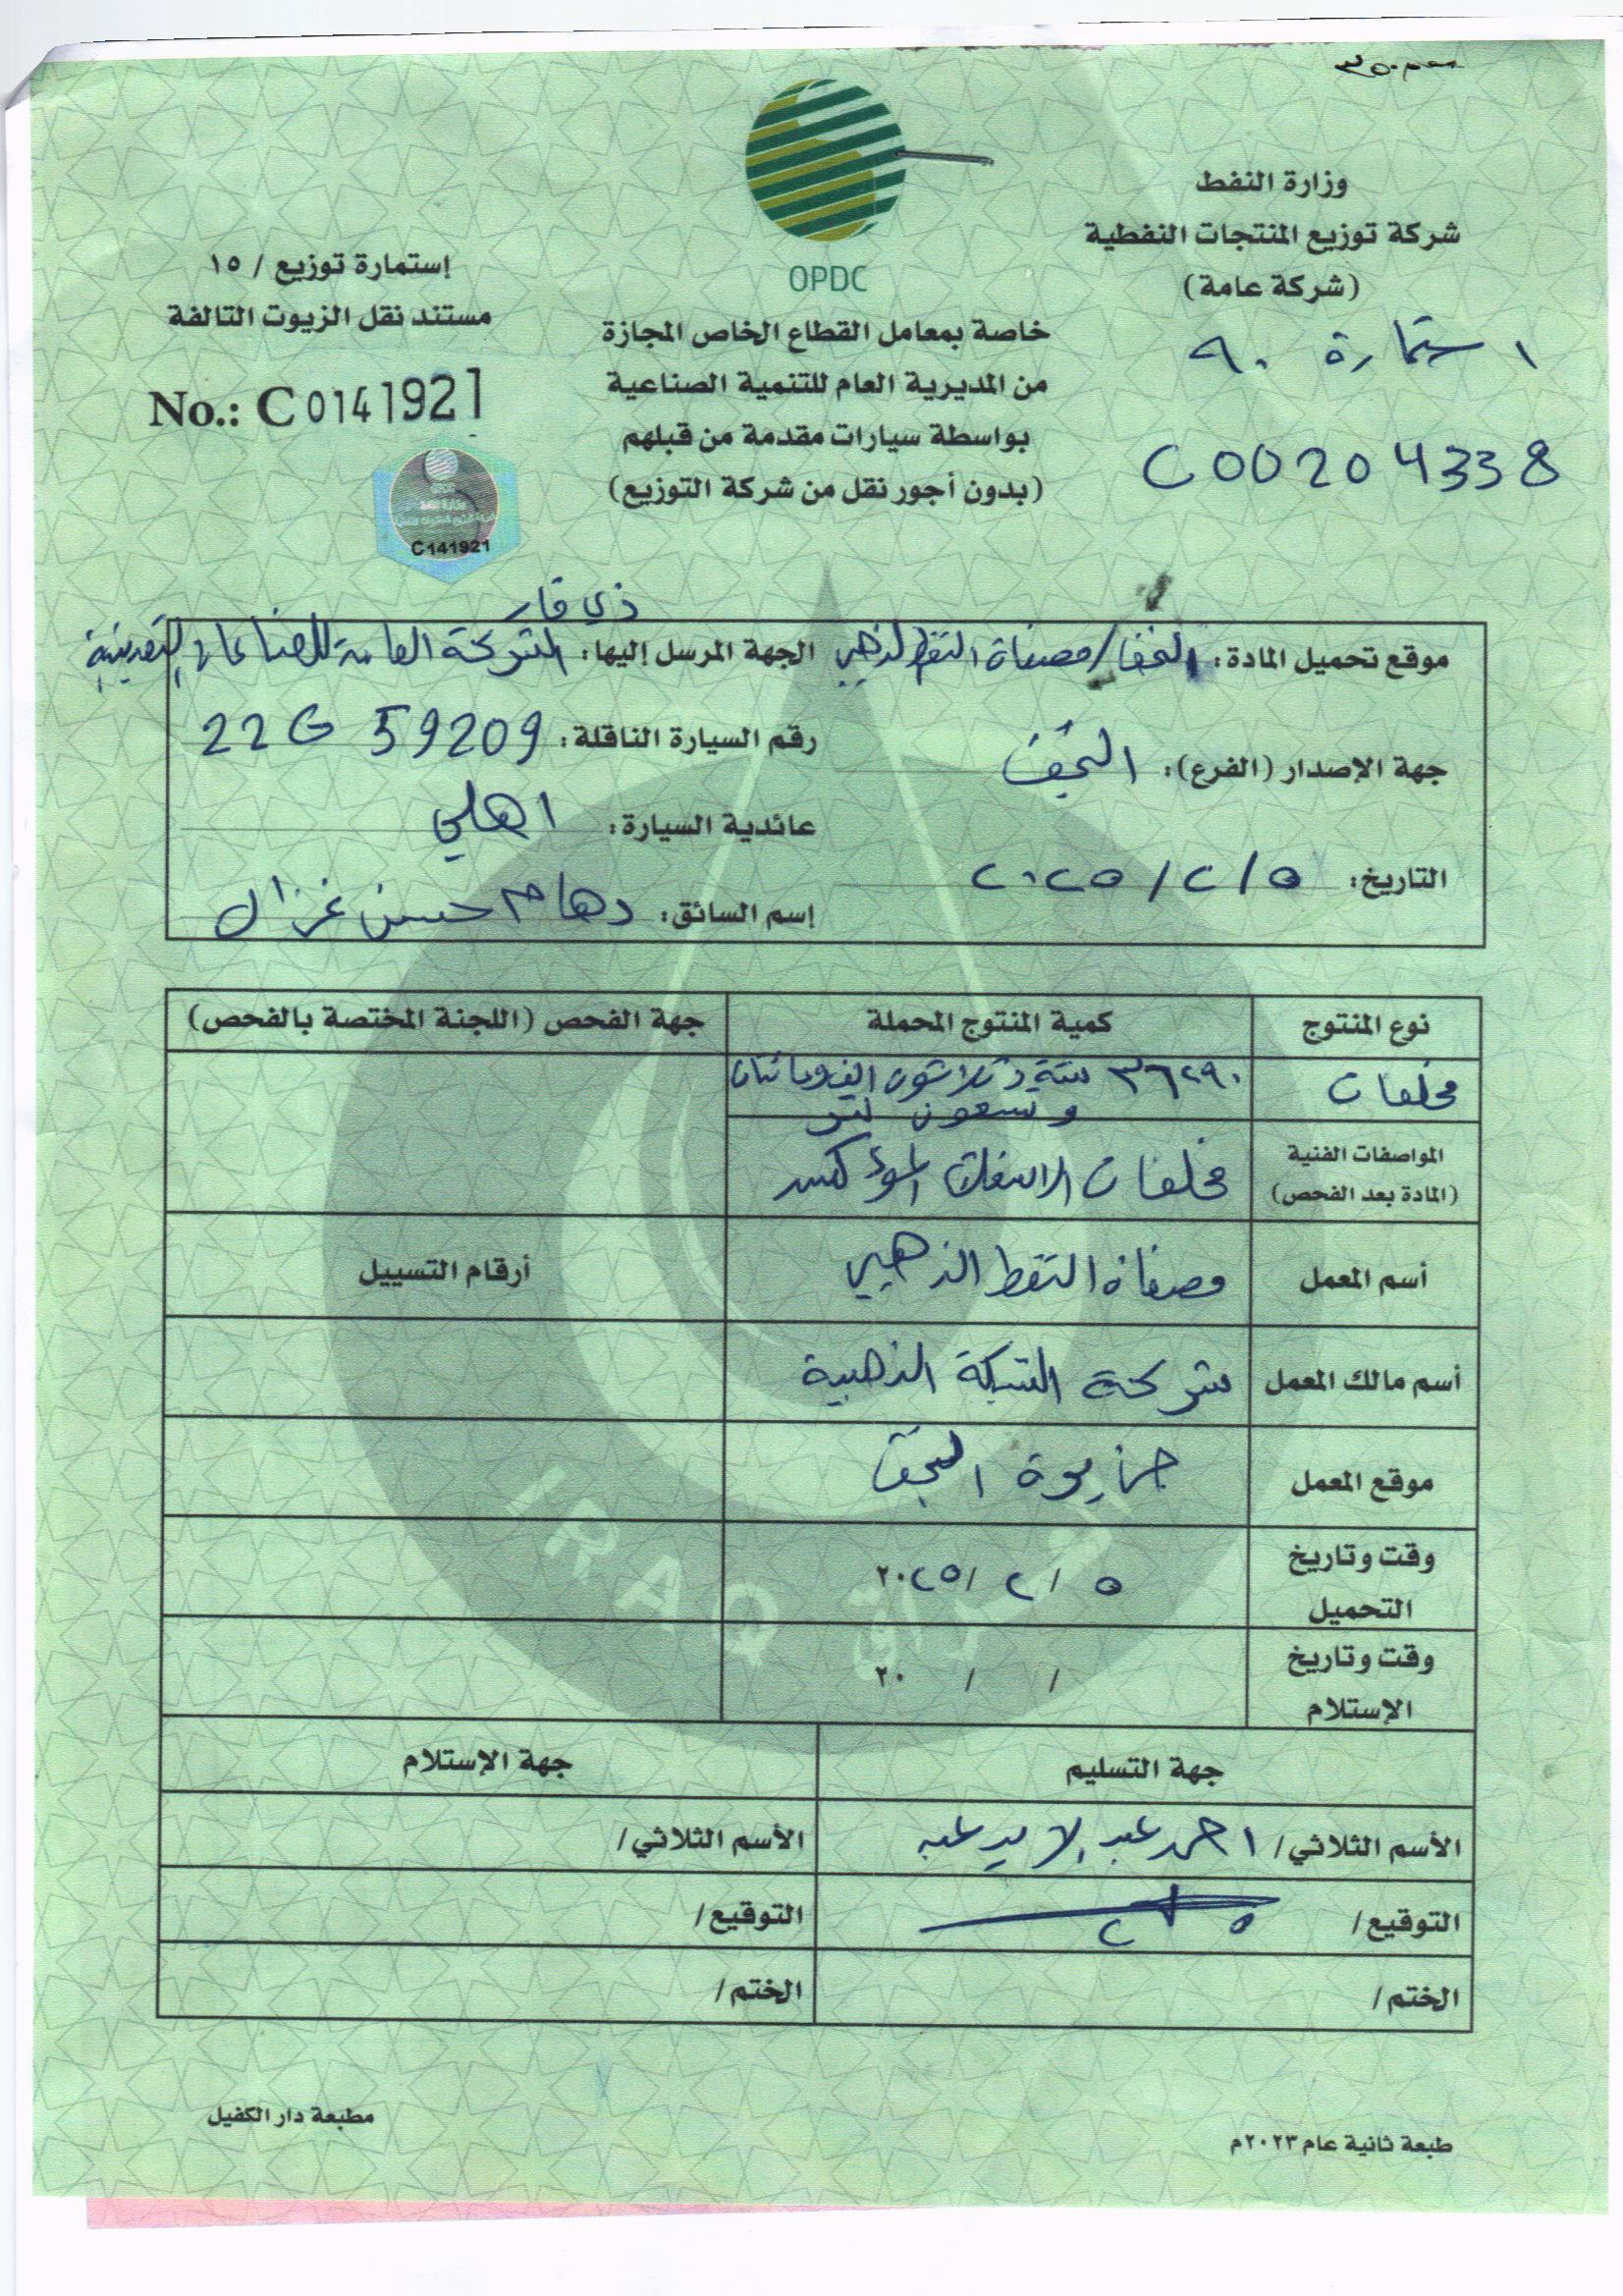 وزارة النفط
شركة توزيع المنتجات النفطية
(شركة عامة)
استمارة ٩٠
C00204338
OPDC
خاصة بمعامل القطاع الخاص المجازة
من المديرية العام للتنمية الصناعية
بواسطة سيارات مقدمة من قبلهم
(بدون أجور نقل من شركة التوزيع)
إستمارة توزيع / ١٥
مستند نقل الزيوت التالفة
No.: C 0141921
C141921
موقع تحميل المادة: النجف / مصفاة النفط الذهبي
جهة الإصدار (الفرع): النجف
التاريخ: ٢٠٢٥/٢/٥
ذي قار
الجهة المرسل إليها: الشركة العامة للصناعات التعدينية
رقم السيارة الناقلة: 22G 59209
عائدية السيارة: اهلي
إسم السائق: دهام حسن غزال
نوع المنتوج كمية المنتوج المحملة جهة الفحص (اللجنة المختصة بالفحص)
مخلفات ٣٦٢٩٠ ستة وثلاثون الف ومائتان
وتسعون لتر
المواصفات الفنية (المادة بعد الفحص) مخلفات الاسفلت المؤكسد
أسم المعمل مصفاة النفط الذهبي أرقام التسييل
أسم مالك المعمل شركة الشبكة الذهبية
موقع المعمل جزيرة النجف
وقت وتاريخ التحميل ٥ / ٢ / ٢٠٢٥
وقت وتاريخ الإستلام / / ٢٠
جهة التسليم جهة الإستلام
الأسم الثلاثي/ احمد عبد الامير عبد الأسم الثلاثي/
التوقيع/ التوقيع/
الختم/ الختم/
IRAQ
طبعة ثانية عام ٢٠٢٣م
مطبعة دار الكفيل